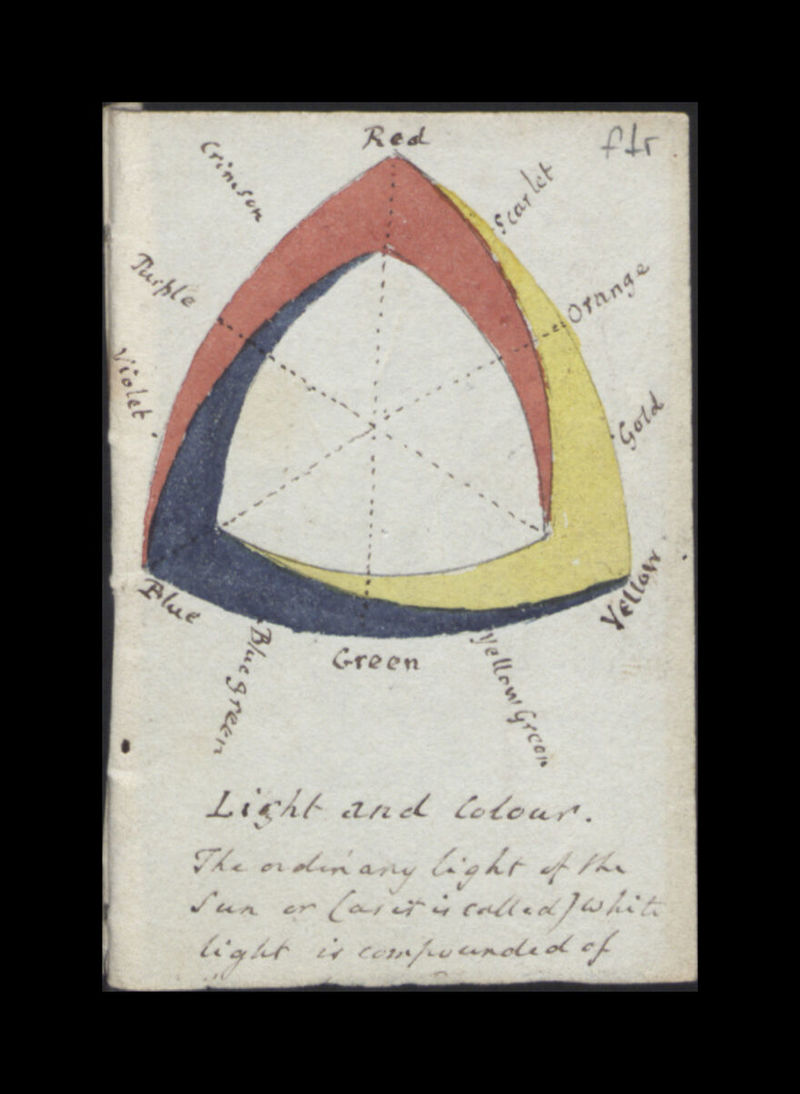 Red
Crimson
Scarlet
Purple
Orange
Violet
Gold
Blue
Yellow
Blue Green
Green
Yellow Green
Light and Colour.
The ordinary light of the
Sun or (as it is called) White
light is compounded of